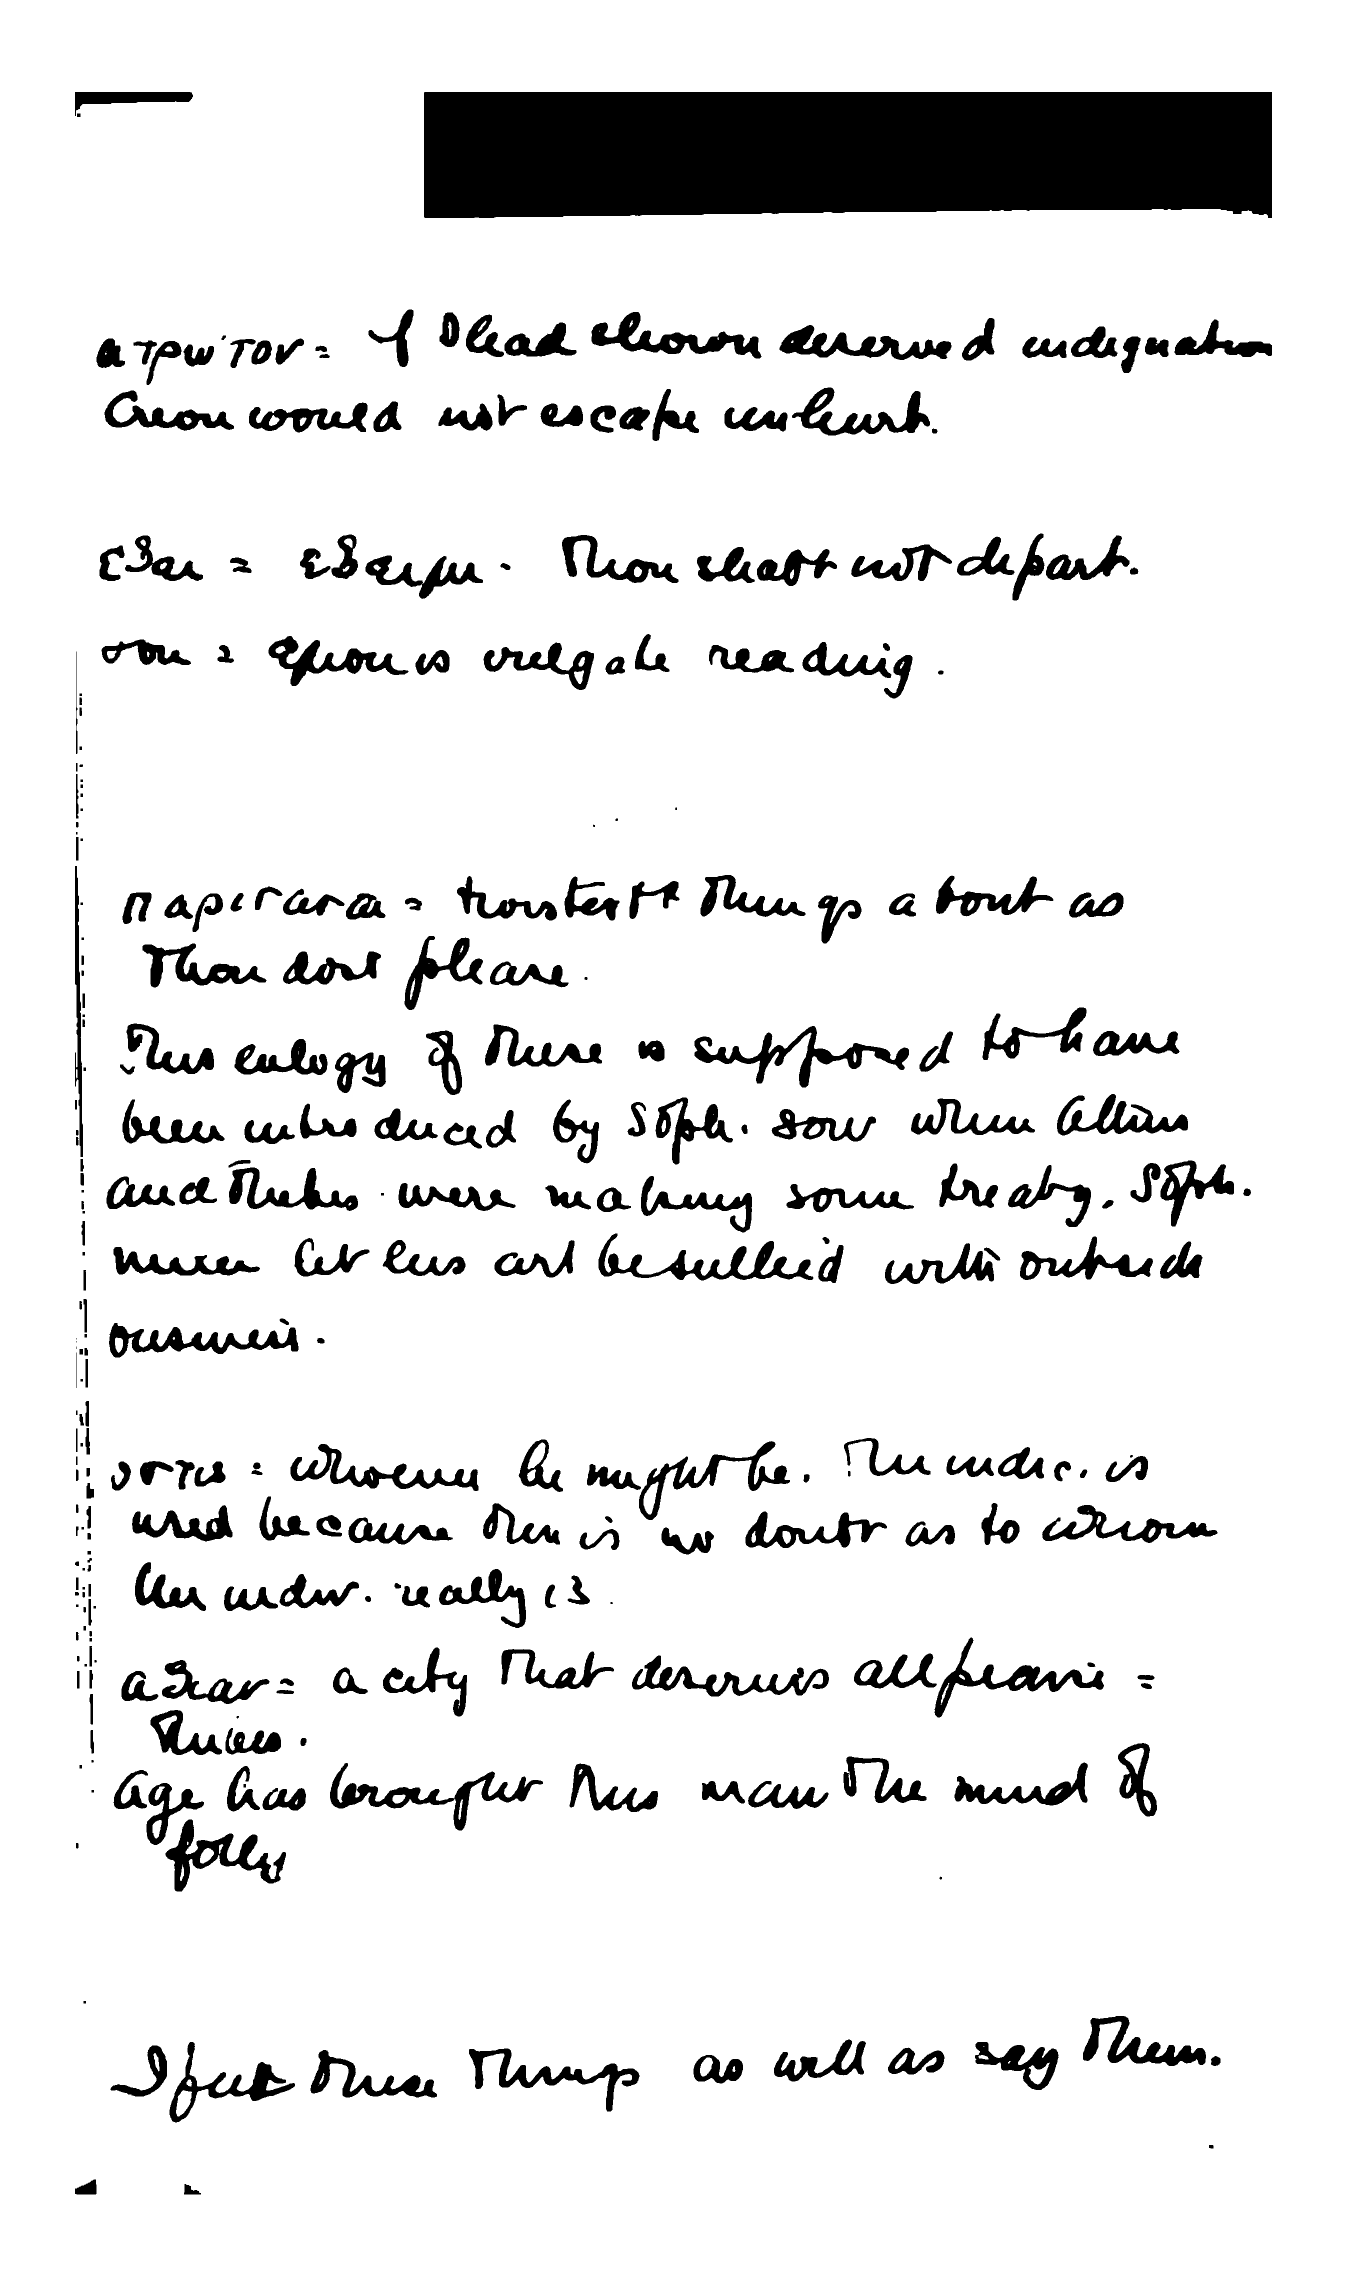 ατρωτον = If I had shown deserved indignation
Creon would not escape unhurt.
εξει = εξειμι. Thou shalt not depart.
σου = εμου is vulgate reading.
παριστασαι = twistest things about as
thou dost please.
This eulogy of these is supposed to have
been introduced by Soph. son when Athens
and Thebes were making some treaty. Soph.
never let his art be sullied with outside
business.
οστις = whoever he might be. The indic. is
used because there is no doubt as to whom
the indiv. really is
αξιαν = a city that deserves all praise =
Thebes.
Age has brought this man the mind of
folly
I felt these things as well as say them.